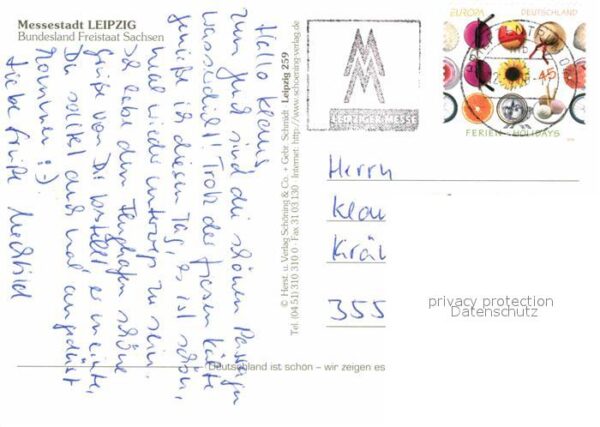 Messestadt LEIPZIG
Bundesland Freistaat Sachsen
Hallo Klaus
zum sind die schönen Passagen
! Trotz der fiesen Kälte
genieße ich diesen Tag, es ist schön,
mal wieder unterwegs zu sein.
habe dem schöne
Grüße von Dir bestellt er meinte,
Du solltest auch mal
kommen :-)
Liebe Grüße Mechtild
© Herst. u. Verlag Schöning & Co. + Gebr. Schmidt · Leipzig 259
Tel. (04 51) 310 310 0 · Fax 31 03 130 · Internet: http://www.schoening-verlag.de
LEIPZIGER MESSE
EUROPA DEUTSCHLAND
45
FERIEN · HOLIDAYS
Herrn
Klau
Kräl
355
privacy protection
Datenschutz
Deutschland ist schön – wir zeigen es